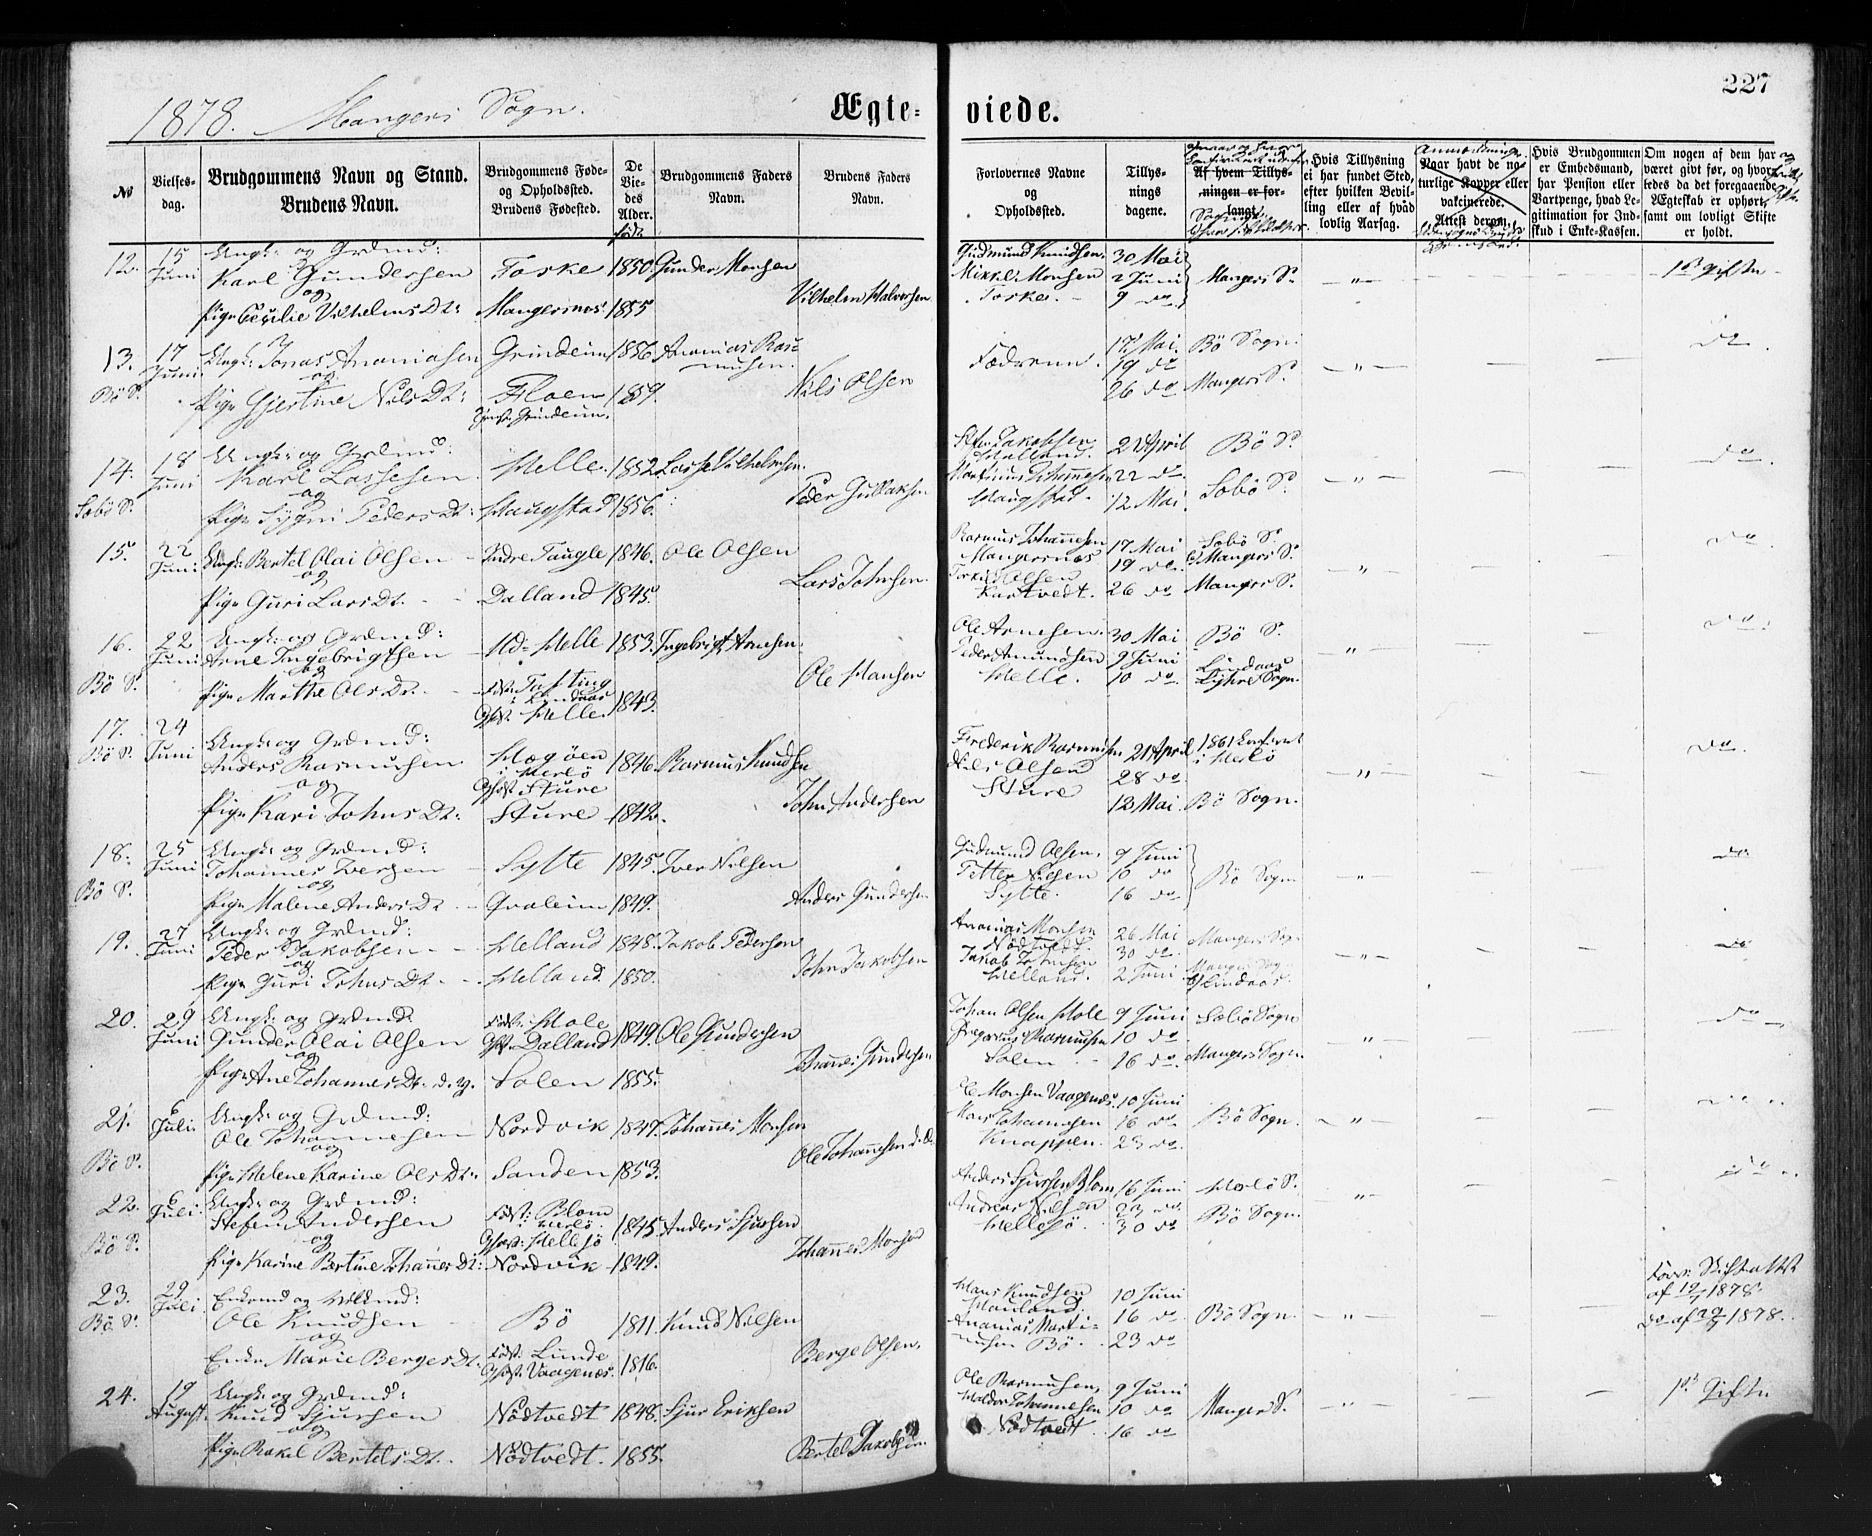 227
1878. Mangers Sogn.
Ægte- viede.
№
Vielses-
dag.
Brudgommens Navn og Stand.
Brudens Navn.
Brudgommens Føde-
og Opholdsted.
Brudens Fødested.
De
Vie-
des
Alder.
født
Brudgommens Faders
Navn.
Brudens Faders
Navn.
Forlovernes Navne
og
Opholdsted.
Tillys-
nings
dagene.
Af hvem Tillys-
ningen er for-
langt.
Hvis Tillysning
ei har fundet Sted,
efter hvilken Bevil-
ling eller af hvad
lovlig Aarsag.
Anmærkninger
Naar havt de na-
turlige Kopper eller
vakcinerede.
Attest derom.
Hvis Brudgommen
er Embedsmand,
har Pension eller
Vartpenge, hvad Le-
gitimation for Ind-
skud i Enke-Kassen.
Om nogen af dem har
været givt før, og hvor-
ledes da det foregaaende
Ægteskab er ophørt,
samt om lovligt Skifte
er holdt.
12. 15 Juni Ungk: og Grdmd:
Karl Gundersen Toske 1850. Gunder Monsen
og
Pige Cecilie Vilhelms Dt: Mangersnes. 1855 Vilhelm Halvorsen
Gudmund Knudsen. 30 Mai
Mikkel Monsen 2 Juni Mangers S. — „ — 1ste Gifte
Toske. 9 do
13. Bö S. 17 Juni Ungk: Jonas Ananiasen Grindeim 1856 Ananias Ras-
musen.
og
Pige Gjertine Nils Dt: Floen 1859. Nils Olsen
Grindeim.
Faderen. 17 Mai. Bö Sogn.
19 do — „ — do.
26 do Mangers S.
14. Sæbö S. 18 Juni Ungk: og Grdmd:
Karl Lassesen Helle. 1852 Lasse Vilhelmsen.
og
Pige Sygni Peders Dt: Haugstad 1856. Peder Gullaksen
Jakobsen 21 April Bö S.
Halland.
Johannesen 22 do — „ — do.
Haugstad. 12 Mai. Sæbö S.
15. 22 Juni Ungk: Bertel Olai Olsen Indre Taugle 1846. Ole Olsen
og
Pige Guri Lars Dt. Dalland 1845. Lars Johnsen.
Rasmus Johannesen 17 Mai Sæbö S.
Mangersnes 19 do Mangers S. — „ — do.
Olsen
Kartvedt. 26 do Mangers S.
16. Bö S. 22 Juni Ungk: og Grdmd:
Arne Ingebrigtsen Helle 1853. Ingebrigt Arnesen.
og
Pige Marthe Ols Dt. 1843. Ole Hansen
Helle.
Ole Arnesen. 30 Mai Bö S.
Peder Amundsen 9 Juni Lindaas — „ do.
Helle. 10 do. Sogn.
17. Bö S. 24 Juni Ungk: og Grdmd:
Anders Rasmusen 1846. Rasmus Knudsen
i Herlö
og Sture
Pige Kari Johns Dt: Sture 1842. John Andersen
Frederik Rasmusen 21 April 1861
Nils Olsen 28 do i Herlö — „ — do.
Sture 12 Mai. Bö Sogn.
18. Bö S. 25 Juni Ungk: og Grdmd:
Johannes Iversen Sylte 1845. Iver Nilsen
og
Pige Malene Anders Dt 1849. Anders Gundersen
Gudmund Olsen. 9 Juni
Petter Nilsen 10 do Bö Sogn. — „ — do
Sylte. 16 do
19. 27 Juni Ungk: og Grdmd:
Peder Jakobsen Helland 1848. Jakob Pedersen
og
Pige Guri Johns Dt. Helland. 1850. John Jakobsen
Ananias Monsen 26 Mai Mangers Sogn
Nödtvedt. 30 do. — „ — do
Jakob Johnsen Mangers Sogn
Helland. 2 Juni
20. 29 Juni Ungk: og Grdmd:
Gunder Olai Olsen Hole 1849. Ole Gundersen
Dalland
og
Pige Ane Johannes Dt. d. y. Solen 1855. Johannes Gundersen
Johan Olsen Hole 9 Juni Sæbö Sogn
Gregorius Rasmusen 10 do — „ — do
Solen 16 do Mangers Sogn.
21. Bö S. 6 Juli. Ungk: og Grdmd:
Ole Johannesen Nordvik 1847. Johannes Monsen
og
Pige Helene Karine Ols Dt: Sanden 1853. Ole Johannesen
Ole Monsen Vaagenæs. 10 Juni
Hans Johannesen 16 do Bö Sogn. — „ —
Knappen. 23 do.
22. Bö S. 6 Juli. Ungk: og Grdmd:
Stefen Andersen Blom 1845. Anders Sjursen
i Herlö.
og Hellesö
Pige Karine Bertine Johannes Dt: Nordvik 1849. Johannes Monsen
Anders Sjursen Blom 16 Juni Herlö S.
Andreas Nilsen 23 do. Bö Sogn. „
Hellesö. 30 do
23. Bö S. 29 Juli Enkemd og
Ole Knudsen Bö 1811. Knud Nilsen
og
Enke Marie Berges Dt: Lunde 1816. Berge Olsen.
Vaagenæs.
Hans Knudsen 10 Juni
16 do Bö Sogn. — „ —
Ananias Marti-
nusen Bö. 23 do
Skifteattest
af 1878.
do af 1878.
24. 19 August. Ungk: og Grdmd:
Knud Sjursen Nödtvedt 1848. Sjur Eriksen
og
Pige Rakel Bertels Dt. Nödtvedt. 1855. Bertel Jakobsen.
Ole Rasmusen, 9 Juni
Haldor Johannesen 10 do Mangers S. — „ — 1ste Gifte
Nödtvedt 16 do